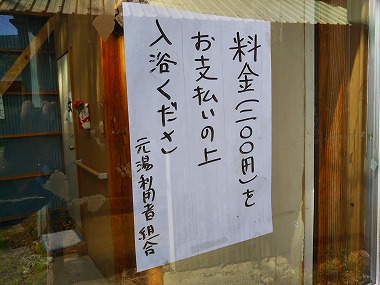 料金(二〇〇円)を
お支払いの上
入浴ください
元湯利用者組合